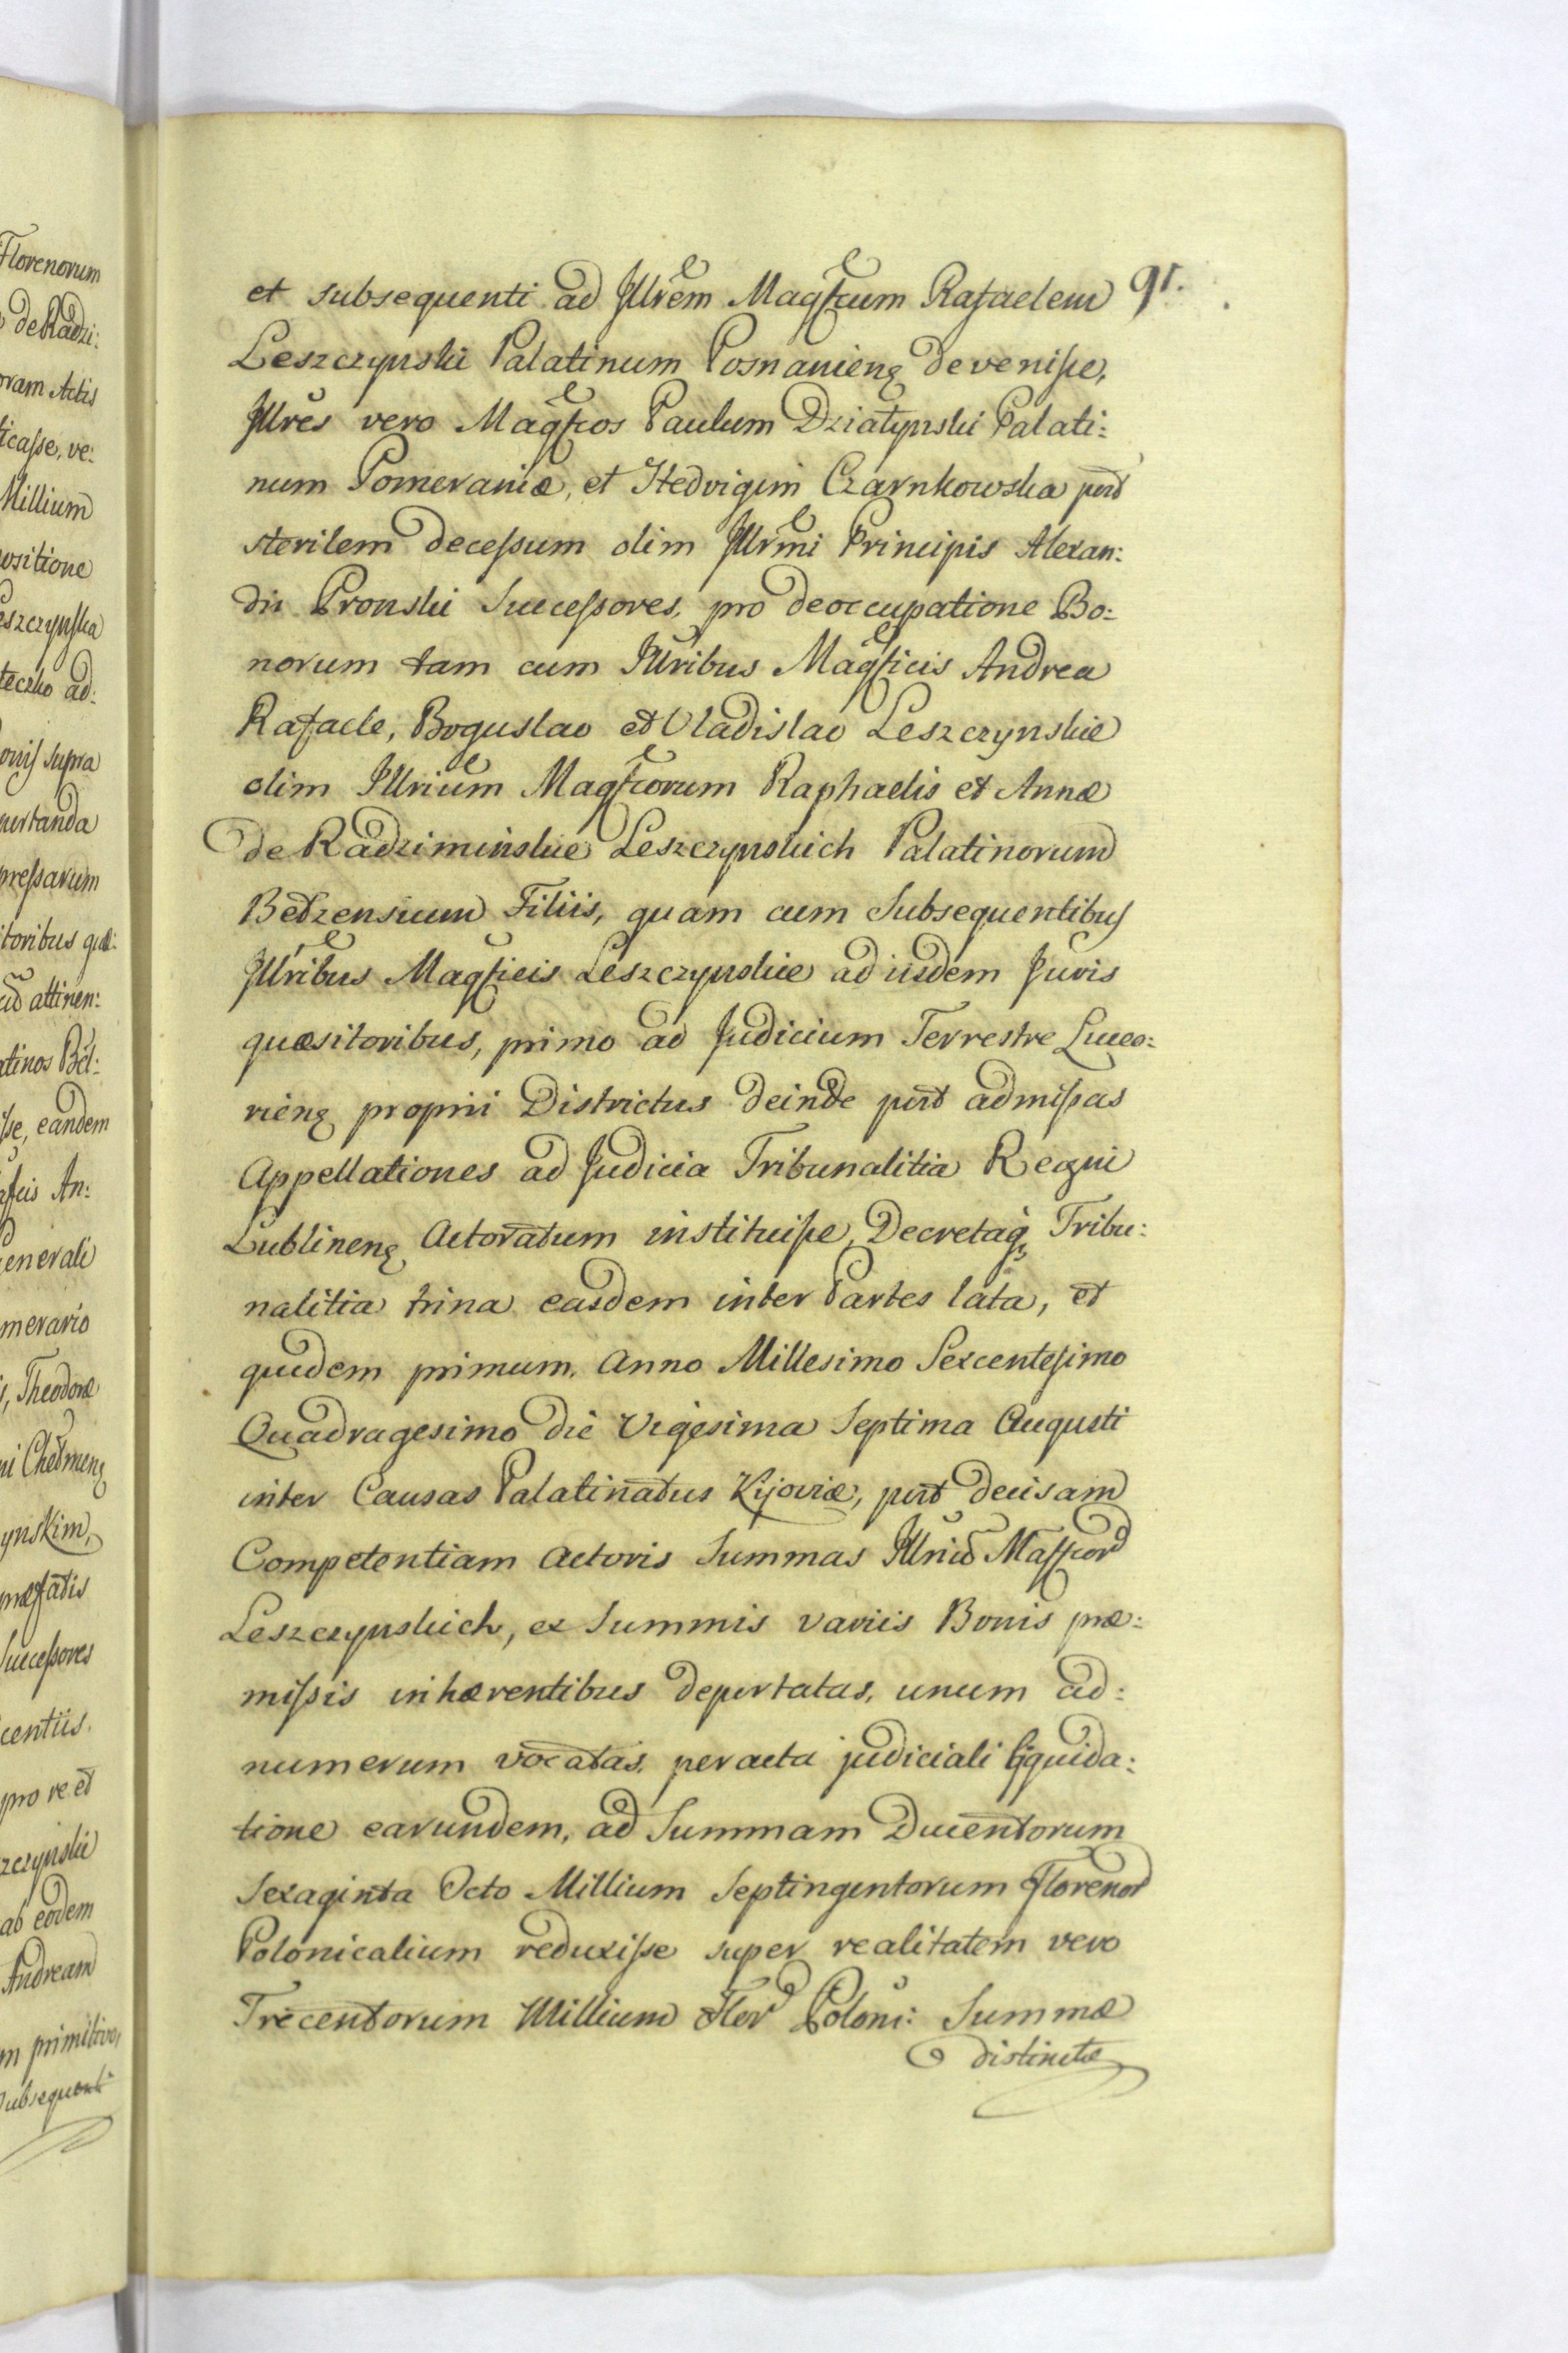 Florenorum
de Radzi:
oram Actis
ticasse, ve:
Millium
ositione
eszczynska
teczko ad:
onis supra
portanda
pressarum
itoribus quæ:
attinen:
atinos Bel:
sse, eandem
ficis An:
enerali
merario
s, Theodoræ
ni Chełmenȩ
ynskim,
præfatis
Successores
centiis.
pro re et
zczynski
ab eodem
Andream
m primitivo,
Subsequenti
91.
et subsequenti ad Jllrem Magfcum Rafaelem
Leszczynski Palatinum Posnanienȩ devenisse,
Jllres vero Magfcos Paulum Działynski Palati:
num Pomeraniæ, et Hedvigim Czarnkowska post
sterilem decessum olim Jllrmi Principis Alexan:
dri Pronski Successores, pro deoccupatione Bo:
norum tam cum Jllribus Magficis Andrea
Rafaele, Boguslao et Vladislao Leszczynskie
olim Jllrium Magfcorum Raphaelis et Annæ
de Radziminskie Leszczynskich Palatinorum
Bełzensium Filiis, quam cum Subsequentibus
Jllribus Magficis Leszczynskie ad iisdem Juris
quæsitoribus, primo ad Judicium Terrestre Luceo:
rienȩ proprii Districtus deinde post admissas
Appellationes ad Judicia Tribunalitia Regni
Lublinenȩ Actoratum instituisse, Decretaq Tribu:
nalitia trina easdem inter Partes lata, et
quidem primum, Anno Millesimo Sexcentesimo
Quadragesimo die Vigesima Septima Augusti
inter Causas Palatinatus Kijoviæ, post decisam
Competentiam Actoris Summas Jllriu Magfcor
Leszczynskich, ex Summis variis Bonis præ:
missis inhærentibus deportatas, unum ad:
numerum vocatas, peracta judiciali liquida:
tione earundem, ad Summam Ducentorum
Sexaginta Octo Millium Septingentorum Florenor
Polonicalium reduxisse super realitatem vero
Trecentorum Millium Flor Poloni: Summæ
distinctæ